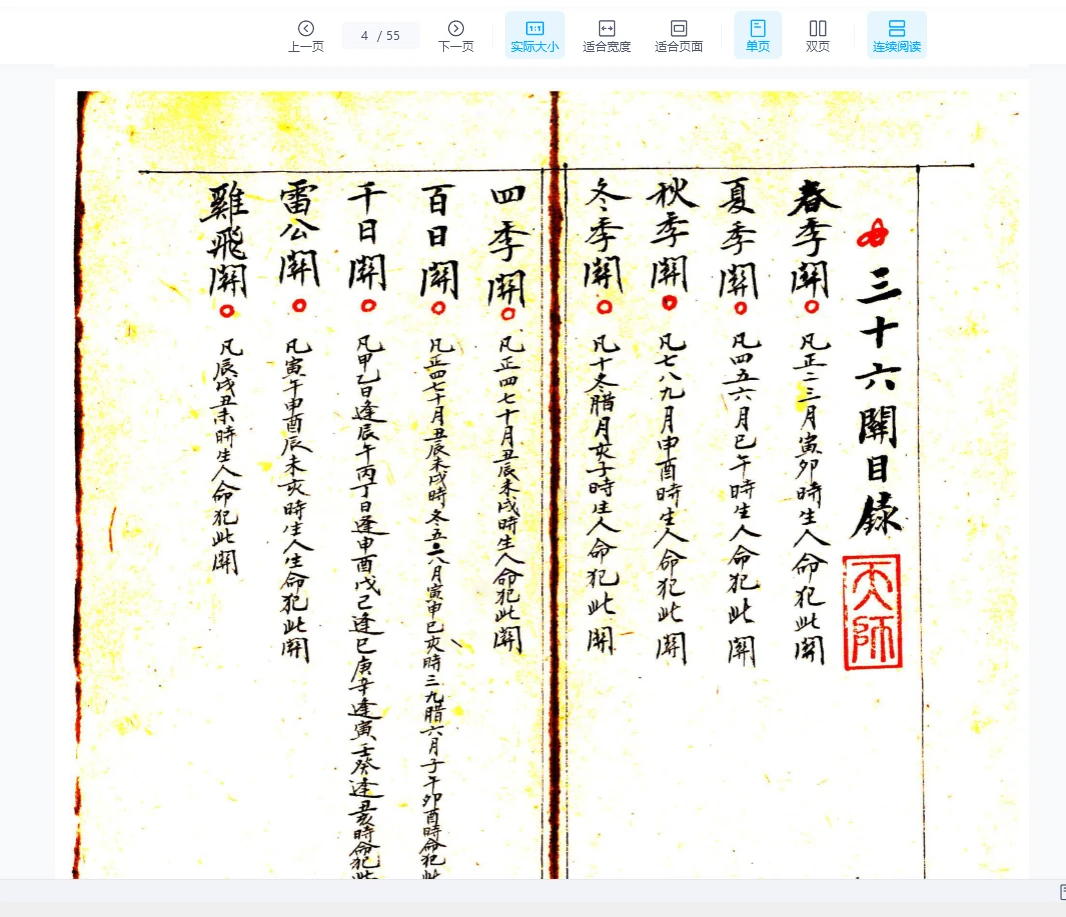 上一页
4 / 55
下一页
实际大小
适合宽度
适合页面
单页
双页
连续阅读
三十六關目録
天師
春季關 凡正二三月寅卯時生人命犯此關
夏季關 凡四五六月巳午時生人命犯此關
秋季關 凡七八九月申酉時生人命犯此關
冬季關 凡十冬腊月亥子時生人命犯此關
四季關 凡正四七十月丑辰未戌時生人命犯此關
百日關 凡正四七十月丑辰未戌時冬五二八月寅申巳亥時三九腊六月子午卯酉時命犯此
千日關 凡甲乙日逢辰午丙丁日逢申酉戊己逢巳庚辛逢寅壬癸逢丑亥時命犯此
雷公關 凡寅午申酉辰未亥時生人生命犯此關
雞飛關 凡辰戌丑未時生人命犯此關